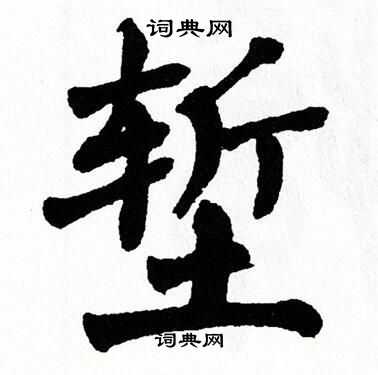 词典网
堑
词典网